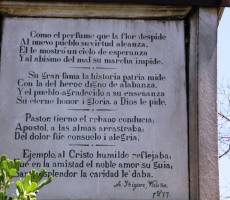 Como el perfume que la flor despide
Al nuevo pueblo su virtud alcanza,
El le mostró un cielo de esperanza
Y al abismo del mal su marcha impide.
Su gran fama la historia patria mide
Con la del heroe digno de alabanza,
Y el pueblo agradecido a su enseñanza
Su eterno honor i gloria á Dios le pide.
Pastor tierno el rebaño conducia;
Apostol, a las almas arrastraba;
Del dolor fué consuelo i alegria.
Ejemplo al Cristo humilde reflejaba;
Fué en la amistad el noble amor su guia,
esplendor la caridad le daba.
A.